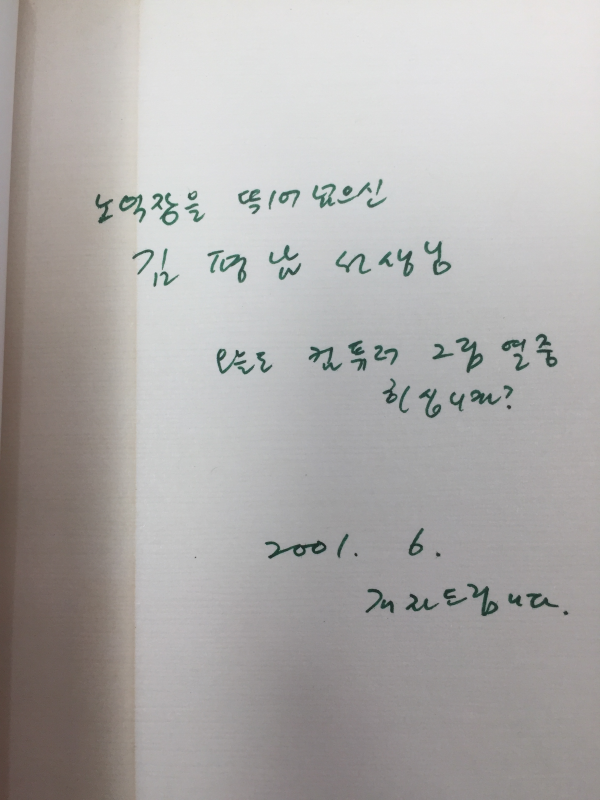 노익장을 뛰어넘으신
김 평남 선생님
오늘도 컴퓨터 그림 열중
하십니까?
2001. 6.
저자드립니다.